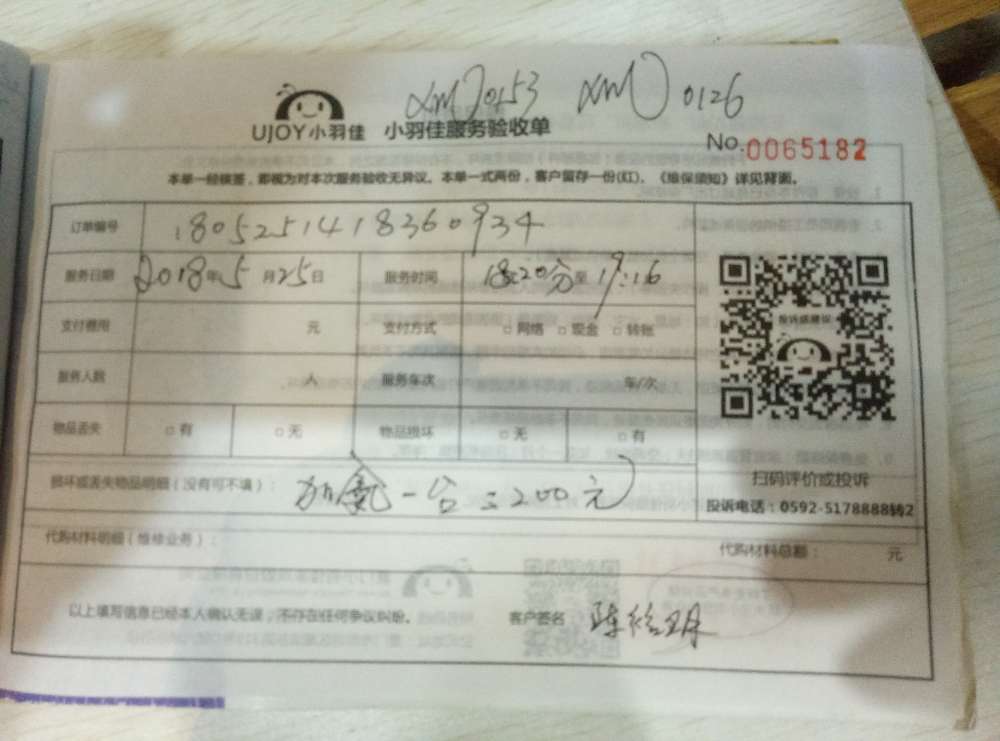 XM0153 XM0126
UJOY小羽佳 小羽佳服务验收单
No.0065182
本单一经核签，即视为对本次服务验收无异议。本单一式两份，客户留存一份(红)、《维保须知》详见背面。
订单编号 1805251418360934
服务日期 2018年5月25日 服务时间 18:20分至19:16
支付费用 元 支付方式 □网络 □现金 □转账
投诉或建议
服务人数 人 服务车次 车/次
物品丢失 □有 □无 物品损坏 □无 □有
扫码评价或投诉
损坏或丢失物品明细(没有可不填)： 加氟一台=200元
投诉电话：0592-5178888转2
代购材料明细(维修业务)： 代购材料总额： 元
以上填写信息已经本人确认无误，不存在任何争议纠纷。 客户签名